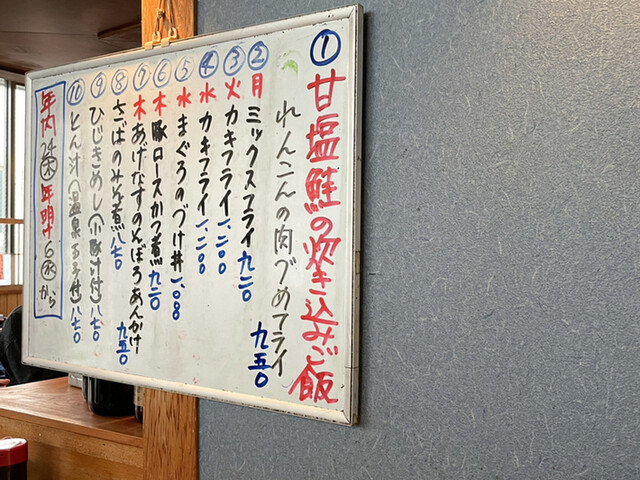 ① 甘塩鮭の炊き込みご飯
れんこんの肉づめフライ 九五〇
② 月 ミックスフライ 九二〇
③ 火 カキフライ 一、二〇〇
④ 水 カキフライ 一、二〇〇
⑤ 水 まぐろのづけ丼 一、一〇〇
⑥ 木 豚ロースかつ煮 九二〇
⑦ 木 あげなすのそぼろあんかけ 九五〇
⑧ さばのみそ煮 八七〇
⑨ ひじきめし(小豚汁付) 八七〇
⑩ とん汁(温泉玉子付) 八七〇
年内24㊍ 年明け6㊌から